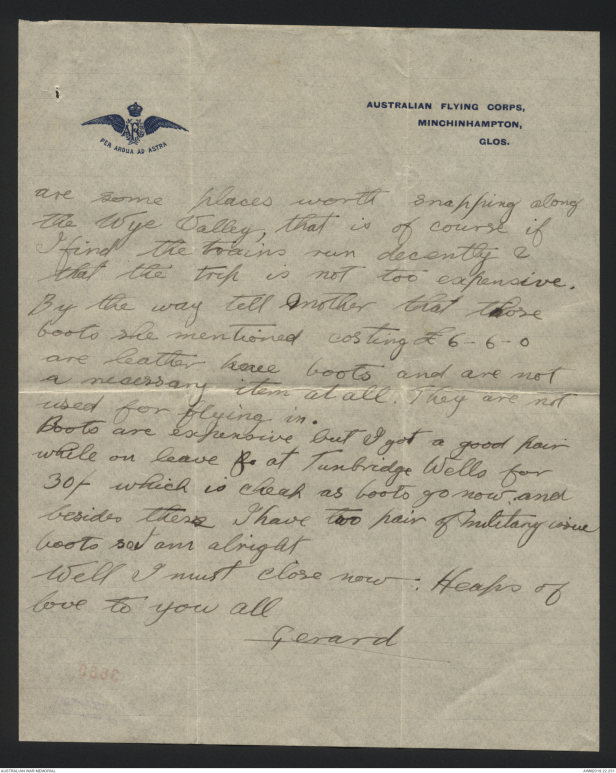 PER ARDUA AD ASTRA
AUSTRALIAN FLYING CORPS,
MINCHINHAMPTON,
GLOS.
are some places worth snapping along
the Wye Valley, that is of course if
I find the trains run decently &
that the trip is not too expensive.
By the way tell Mother that those
boots she mentioned costing £6-6-0
are leather knee boots and are not
a necessary item at all. They are not
used for flying in.
Boots are expensive but I got a good pair
while on leave at Tunbridge Wells for
30/- which is cheap as boots go now and
besides these I have two pair of military issue
boots so am alright
Well I must close now. Heaps of
love to you all
Gerard
AUSTRALIAN WAR MEMORIAL